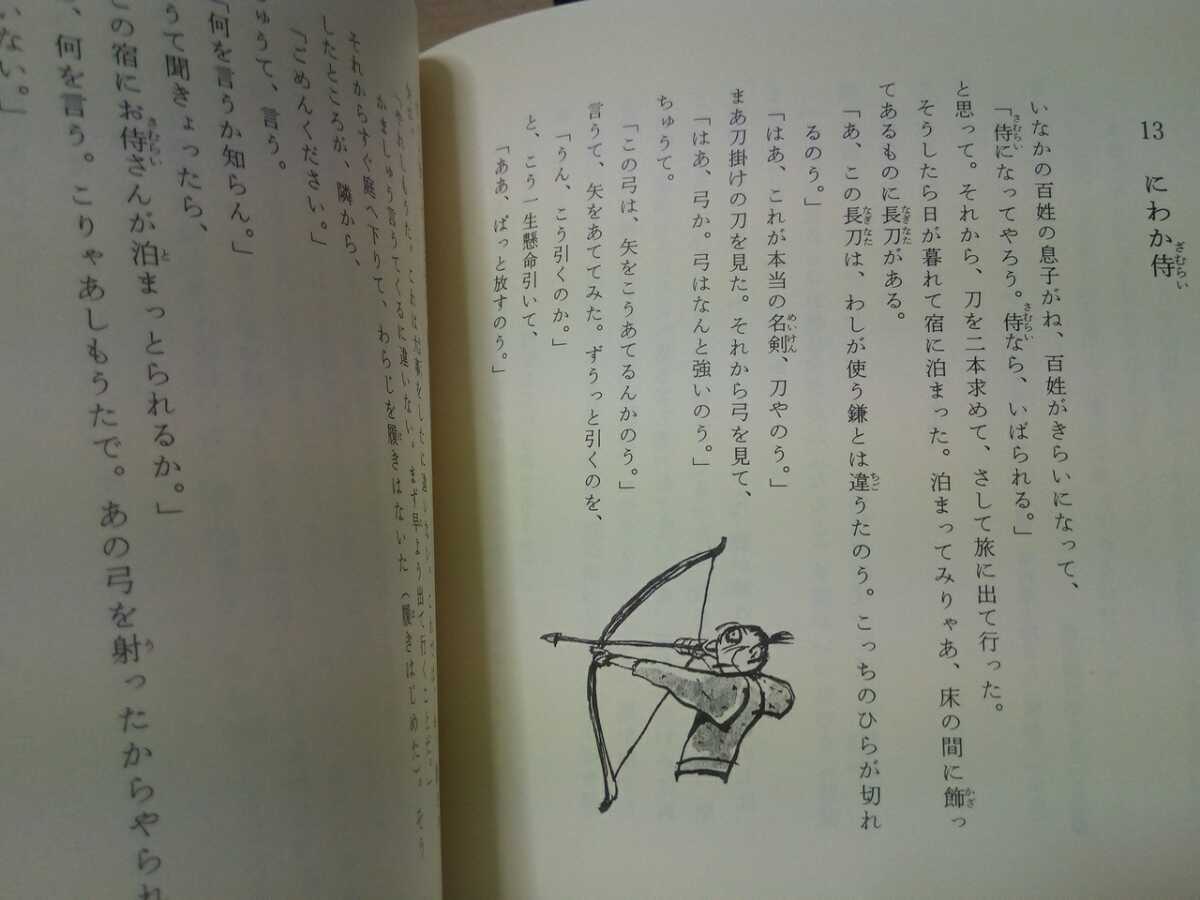 13 にわか侍
ざむらい
いなかの百姓の息子がね、百姓がきらいになって、
「侍になってやろう。侍なら、いばられる。」
さむらい
さむらい
と思って。それから、刀を二本求めて、さして旅に出て行った。
そうしたら日が暮れて宿に泊まった。泊まってみりゃあ、床の間に飾っ
かざ
てあるものに長刀がある。
なぎなた
「あ、この長刀は、わしが使う鎌とは違うたのう。こっちのひらが切れ
なぎなた
ちご
るのう。」
「はあ、これが本当の名剣、刀やのう。」
めいけん
まあ刀掛けの刀を見た。それから弓を見て、
「はあ、弓か。弓はなんと強いのう。」
ちゅうて。
「この弓は、矢をこうあてるんかのう。」
言うて、矢をあててみた。ずうっと引くのを、
「うん、こう引くのか。」
と、こう一生懸命引いて、
「ああ、ぱっと放すのう。」
かましゅう言うてくるに違いない。まず早よう出て行くことだ。」
それからすぐ庭へ下りて、わらじを履きはないた(履きはじめた)。そう
したところが、隣から、
「ごめんください。」
ちゅうて、言う。
「何を言うか知らん。」
うて聞きょったら、
この宿にお侍さんが泊まっとられるか。」
さむらい
と
、何を言う。こりゃあしもうたで。あの弓を射ったからやられ
う
いない。」